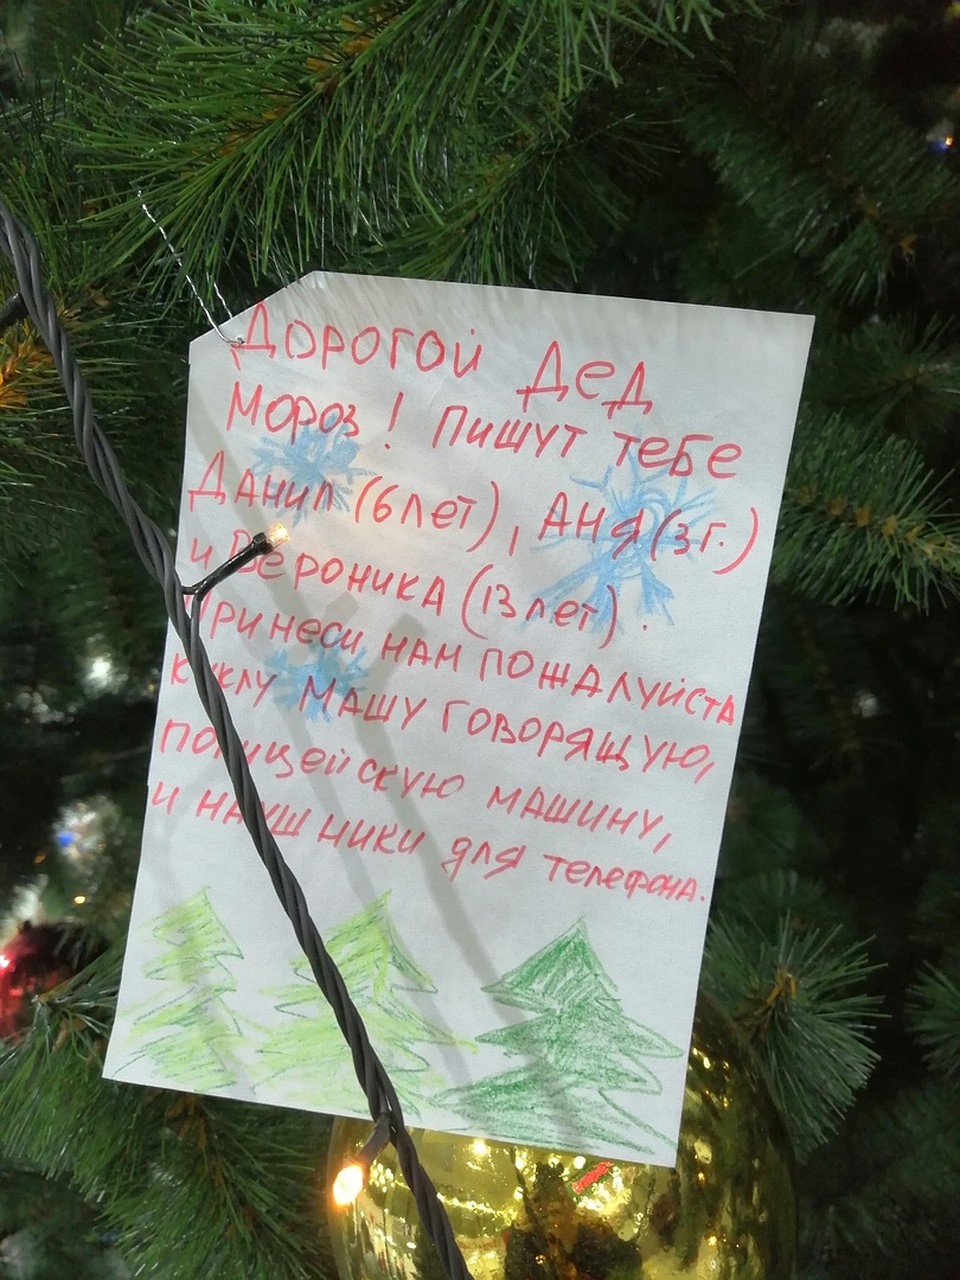 Дорогой Дед
Мороз! Пишут тебе
Данил (6 лет), Аня (3 г.)
и Вероника (13 лет).
Принеси нам пожалуйста
куклу Машу говорящую,
полицейскую машину,
и наушники для телефона.